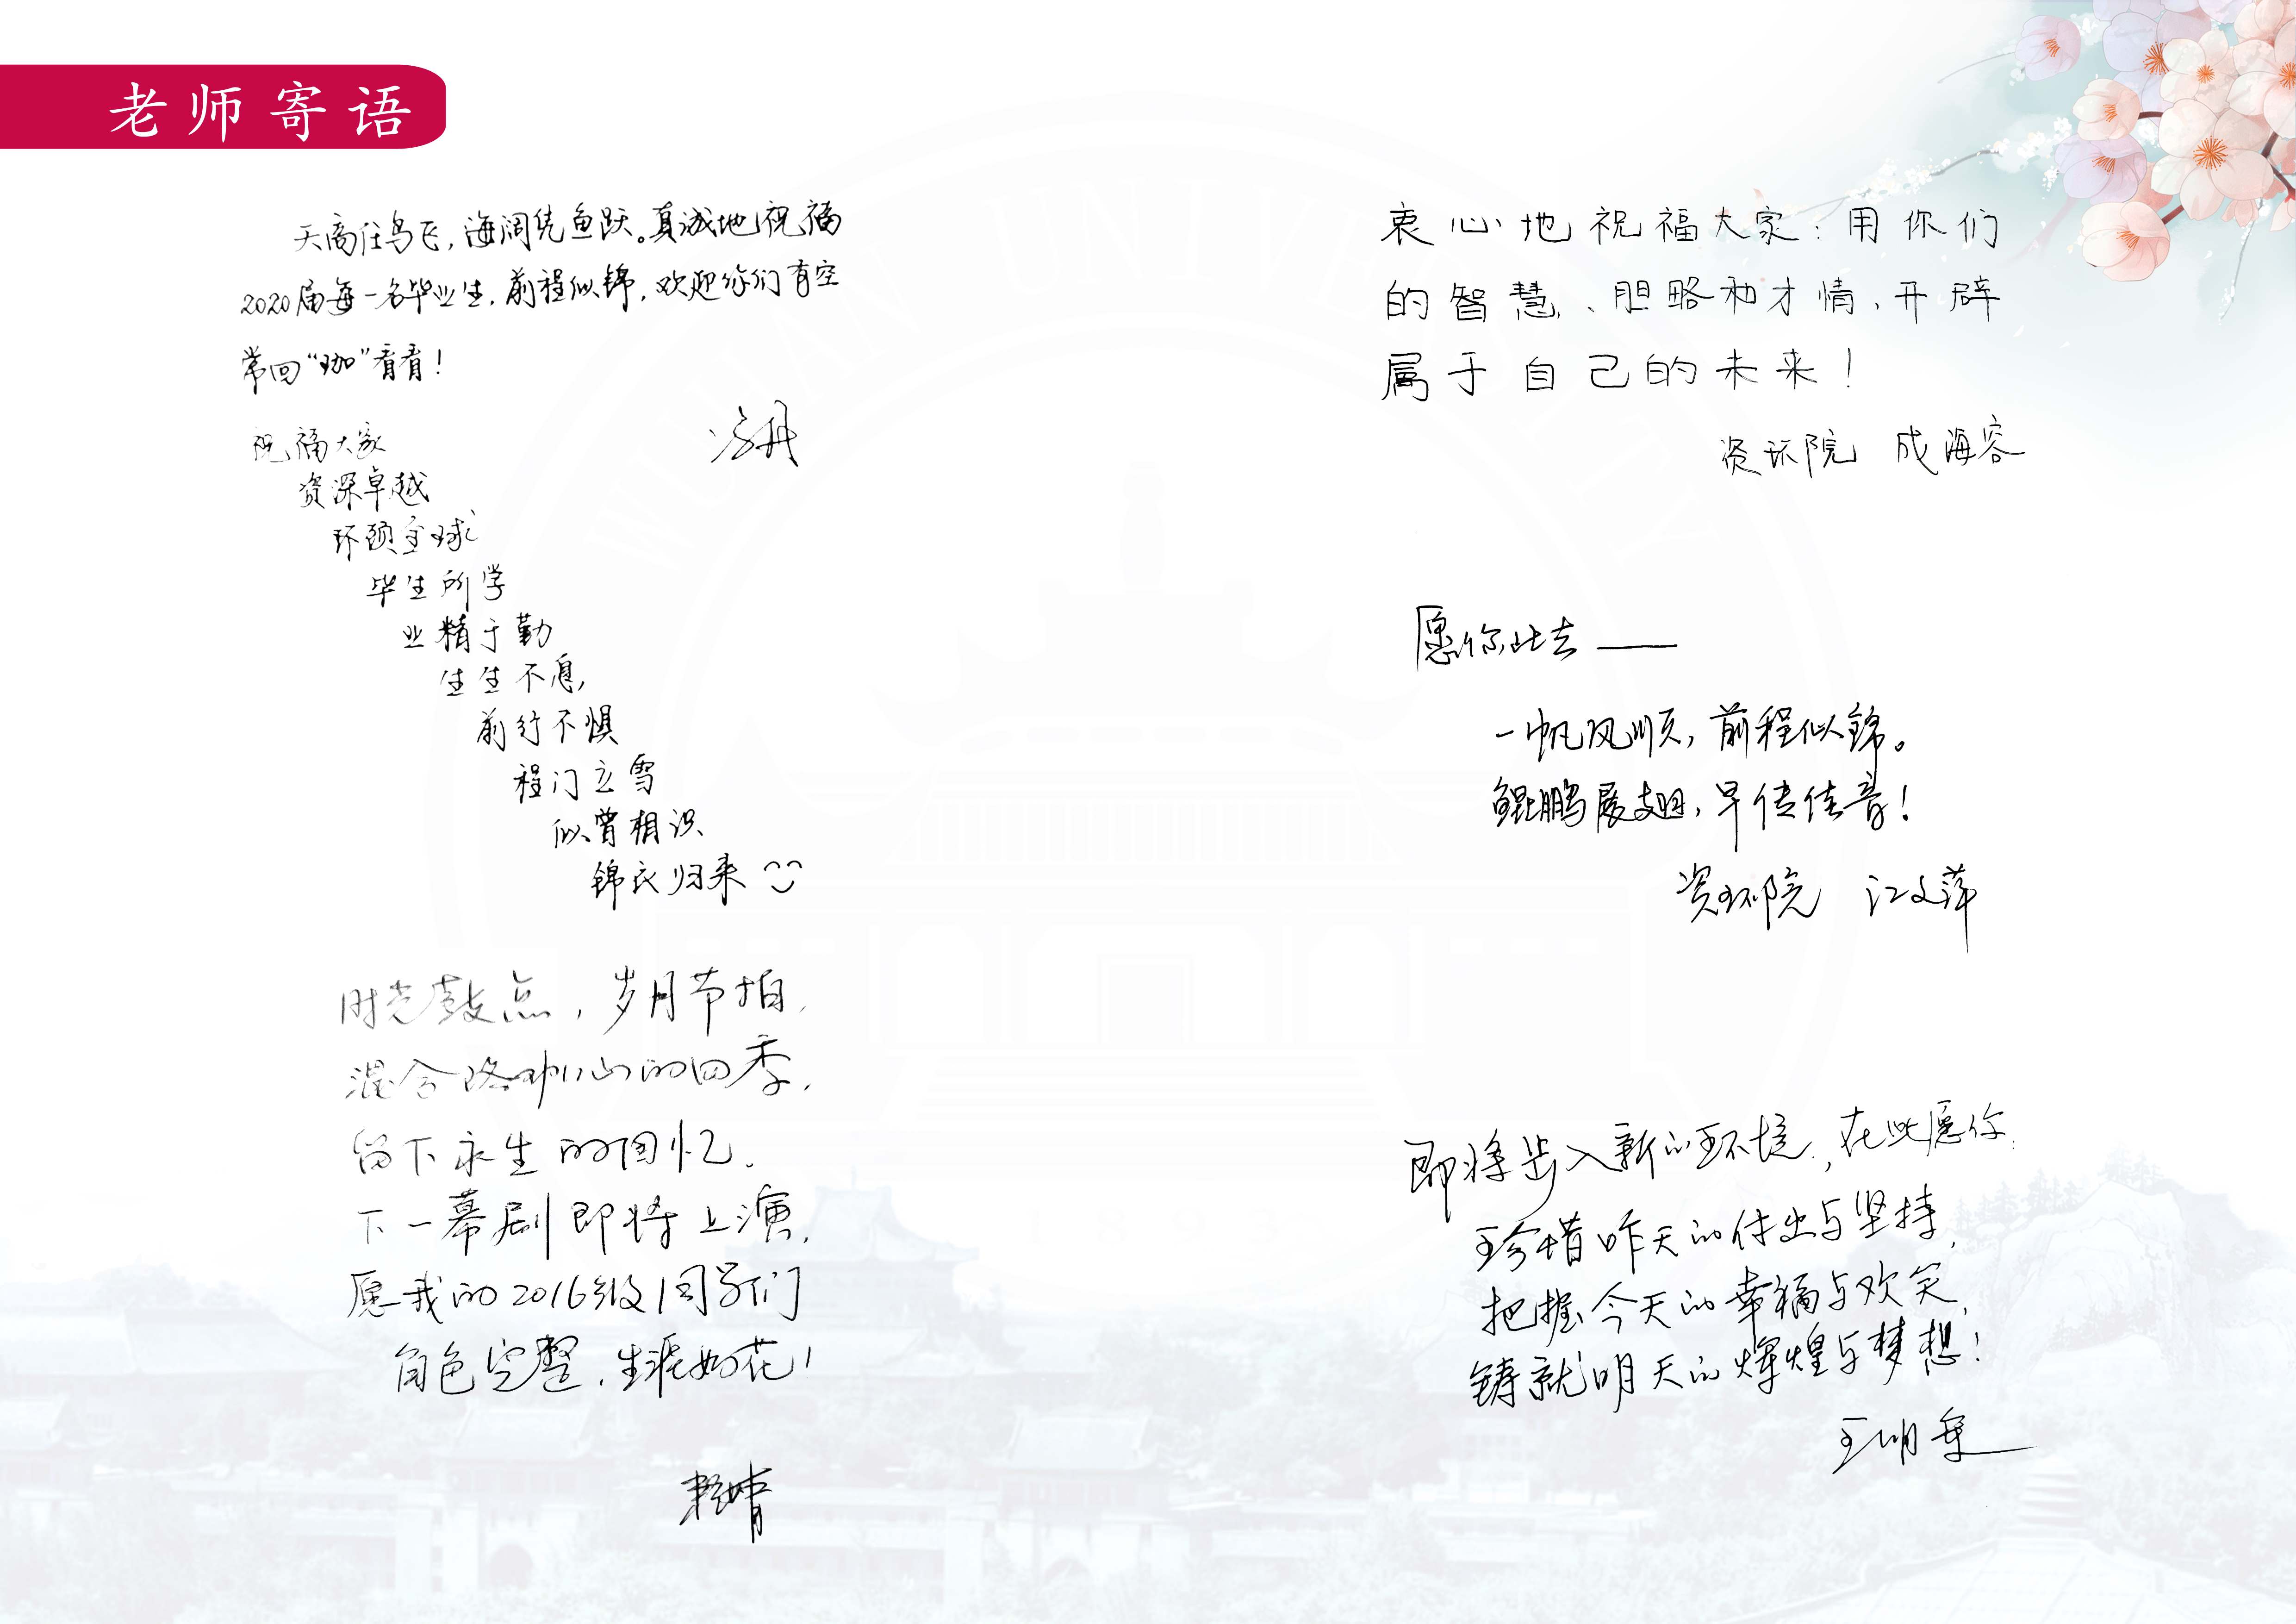 老师寄语
天高任鸟飞，海阔凭鱼跃。真诚地祝福
2020届每一名毕业生，前程似锦，欢迎你们有空
常回“珈”看看！
祝福大家
资深卓越
环颈全球
毕生所学
业精于勤
生生不息，
前行不惧
程门立雪
似曾相识
锦衣归来
时光鼓点，岁月节拍，
混合珞珈山的四季，
留下永生的回忆。
下一幕剧即将上演，
愿我的2016级同学们
角色完整，生涯如花！
衷心地祝福大家：用你们
的智慧、胆略和才情，开辟
属于自己的未来！
资环院 成海容
愿你此去——
一帆风顺，前程似锦。
鲲鹏展翅，早传佳音！
资环院 江文萍
即将步入新的环境，在此愿你：
珍惜昨天的付出与坚持，
把握今天的幸福与欢笑，
铸就明天的辉煌与梦想！